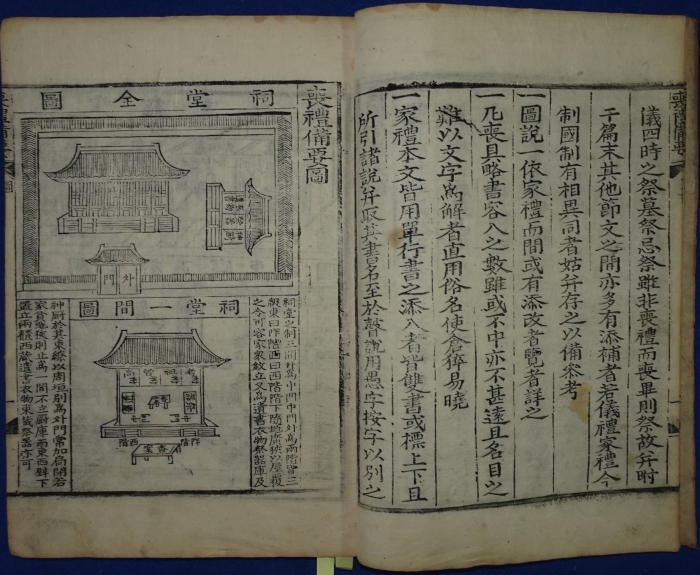 儀四時之祭墓祭忌祭雖非喪禮而喪畢則祭故幷附
于篇末其他節文之間亦多有添補者若儀禮家禮今
制國制有相異同者姑幷存之以備參考
一圖說一依家禮而間或有添改者覽者詳之
一凡喪具略書容入之數雖或不中亦不甚遠且各目之
難以文字爲解者直用俗名使倉猝易曉
一家禮本文皆用單行書之添入者皆雙書或標上下且
所引諸說幷取其書名至於瞽說用愚字按字以別之
喪禮備要圖
祠堂全圖
外門
祠堂一間圖
高
曾
祖
考
香案
阼階
西階
祠堂之制三間外爲中門中門外爲兩階皆三
級東曰阼階西曰西階階下隨地廣狹以屋覆
之令可容家衆敘立又爲遺書衣物祭器庫及
神廚於其東繚以周垣別爲外門常加扃閉若
家貧地狹則止爲一間不立廚庫而東西壁下
置立兩櫃西藏遺書衣物東藏祭器亦可